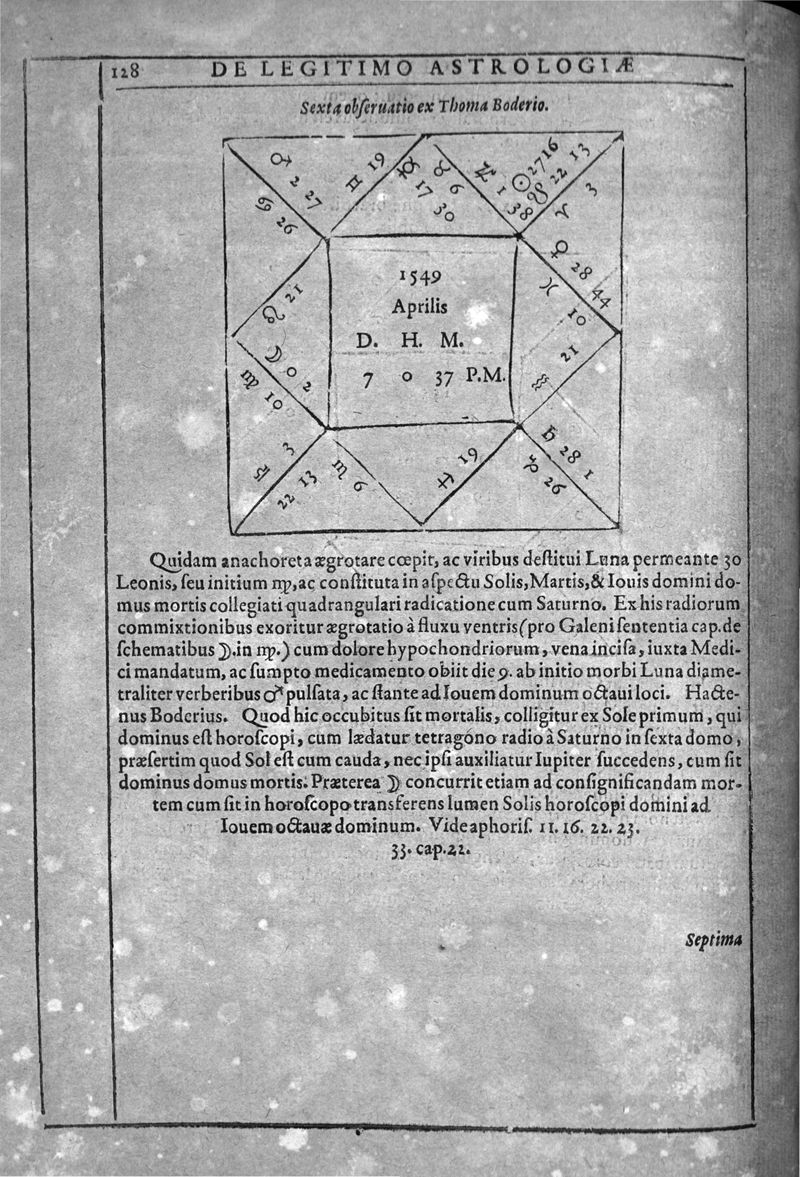 128 DE LEGITIMO ASTROLOGIÆ
Sexta obſeruatio ex Thoma Boderio.
♂ 2 27
♋ 26
♊ 19
☿ 17 30
♉ 6
♃ 1 38
☉ 27 16
☋ 22 13
♈ 3
♀ 28 44
♓ 10
♒ 21
♄ 28 1
♑ 26
♐ 19
♏ 6
♎ 3
22 13
☽ 0 2
♍ 10
♌ 21
1549
Aprilis
D. H. M.
7 0 37 P.M.
Quidam anachoreta ægrotare cœpit, ac viribus deſtitui Luna permeante 30
Leonis, ſeu initium ♍, ac conſtituta in aſpectu Solis, Martis, & Iouis domini do-
mus mortis collegiati quadrangulari radicatione cum Saturno. Ex his radiorum
commixtionibus exoritur ægrotatio à fluxu ventris (pro Galeni ſententia cap. de
ſchematibus ☽. in ♍.) cum dolore hypochondriorum, vena inciſa, iuxta Medi-
ci mandatum, ac ſumpto medicamento obiit die 9. ab initio morbi Luna diame-
traliter verberibus ♂ pulſata, ac ſtante ad Iouem dominum octaui loci. Hacte-
nus Boderius. Quod hic occubitus ſit mortalis, colligitur ex Sole primum, qui
dominus eſt horoſcopi, cum lædatur tetragóno radio à Saturno in ſexta domo,
præſertim quod Sol eſt cum cauda, nec ipſi auxiliatur Iupiter ſuccedens, cum ſit
dominus domus mortis. Præterea ☽ concurrit etiam ad conſignificandam mor-
tem cum ſit in horoſcopo transferens lumen Solis horoſcopi domini ad
Iouem octauæ dominum. Vide aphoriſ. 11. 16. 22. 23.
33. cap. 22.
Septima